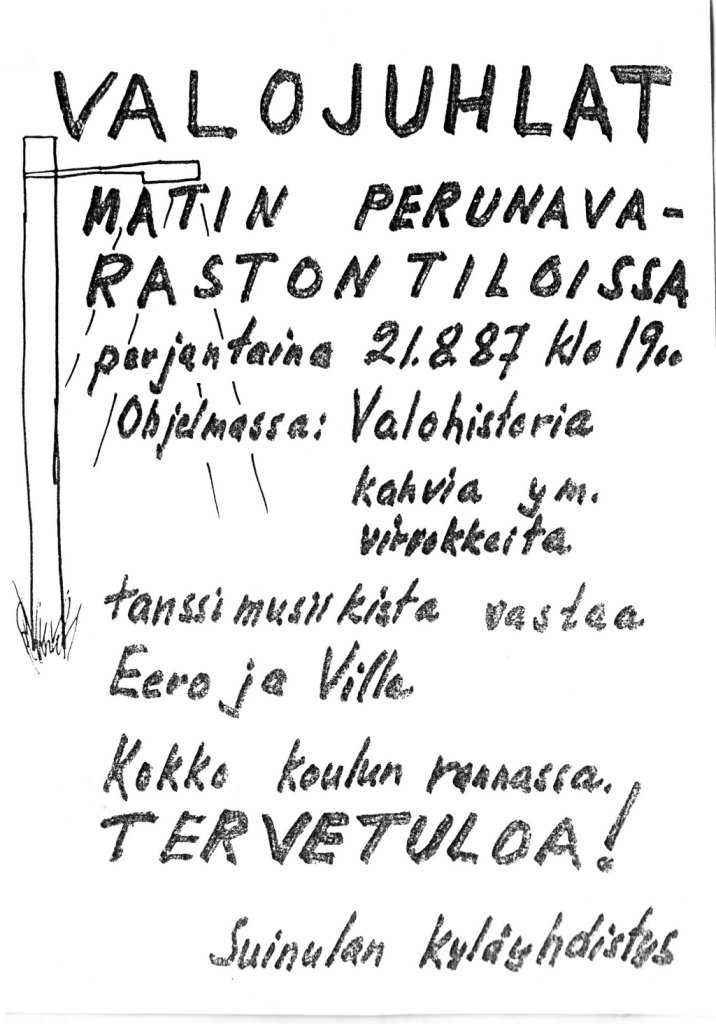 VALOJUHLAT
MATIN PERUNAVA-
RASTON TILOISSA
perjantaina 21.8.87 klo 19oo
Ohjelmassa: Valohistoria
kahvia ym.
virvokkeita
tanssimusiikista vastaa
Eero ja Ville
Kokko koulun rannassa.
TERVETULOA!
Suinulan kyläyhdistys